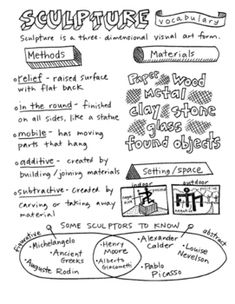 SCULPTURE vocabulary
Sculpture is a three-dimensional visual art form.
Methods
relief - raised surface
with flat back
in the round - finished
on all sides, like a statue
mobile - has moving
parts that hang
additive - created by
building/joining materials
subtractive - created by
carving or taking away
material
Materials
Paper Wood
metal
clay stone
glass
found objects
Setting/space
indoor
outdoor
SOME SCULPTORS TO KNOW
figurative
Michelangelo
Ancient
Greeks
Auguste Rodin
Henry
Moore
Alberto
Giacometti
abstract
Alexander
Calder
Louise
Nevelson
Pablo
Picasso